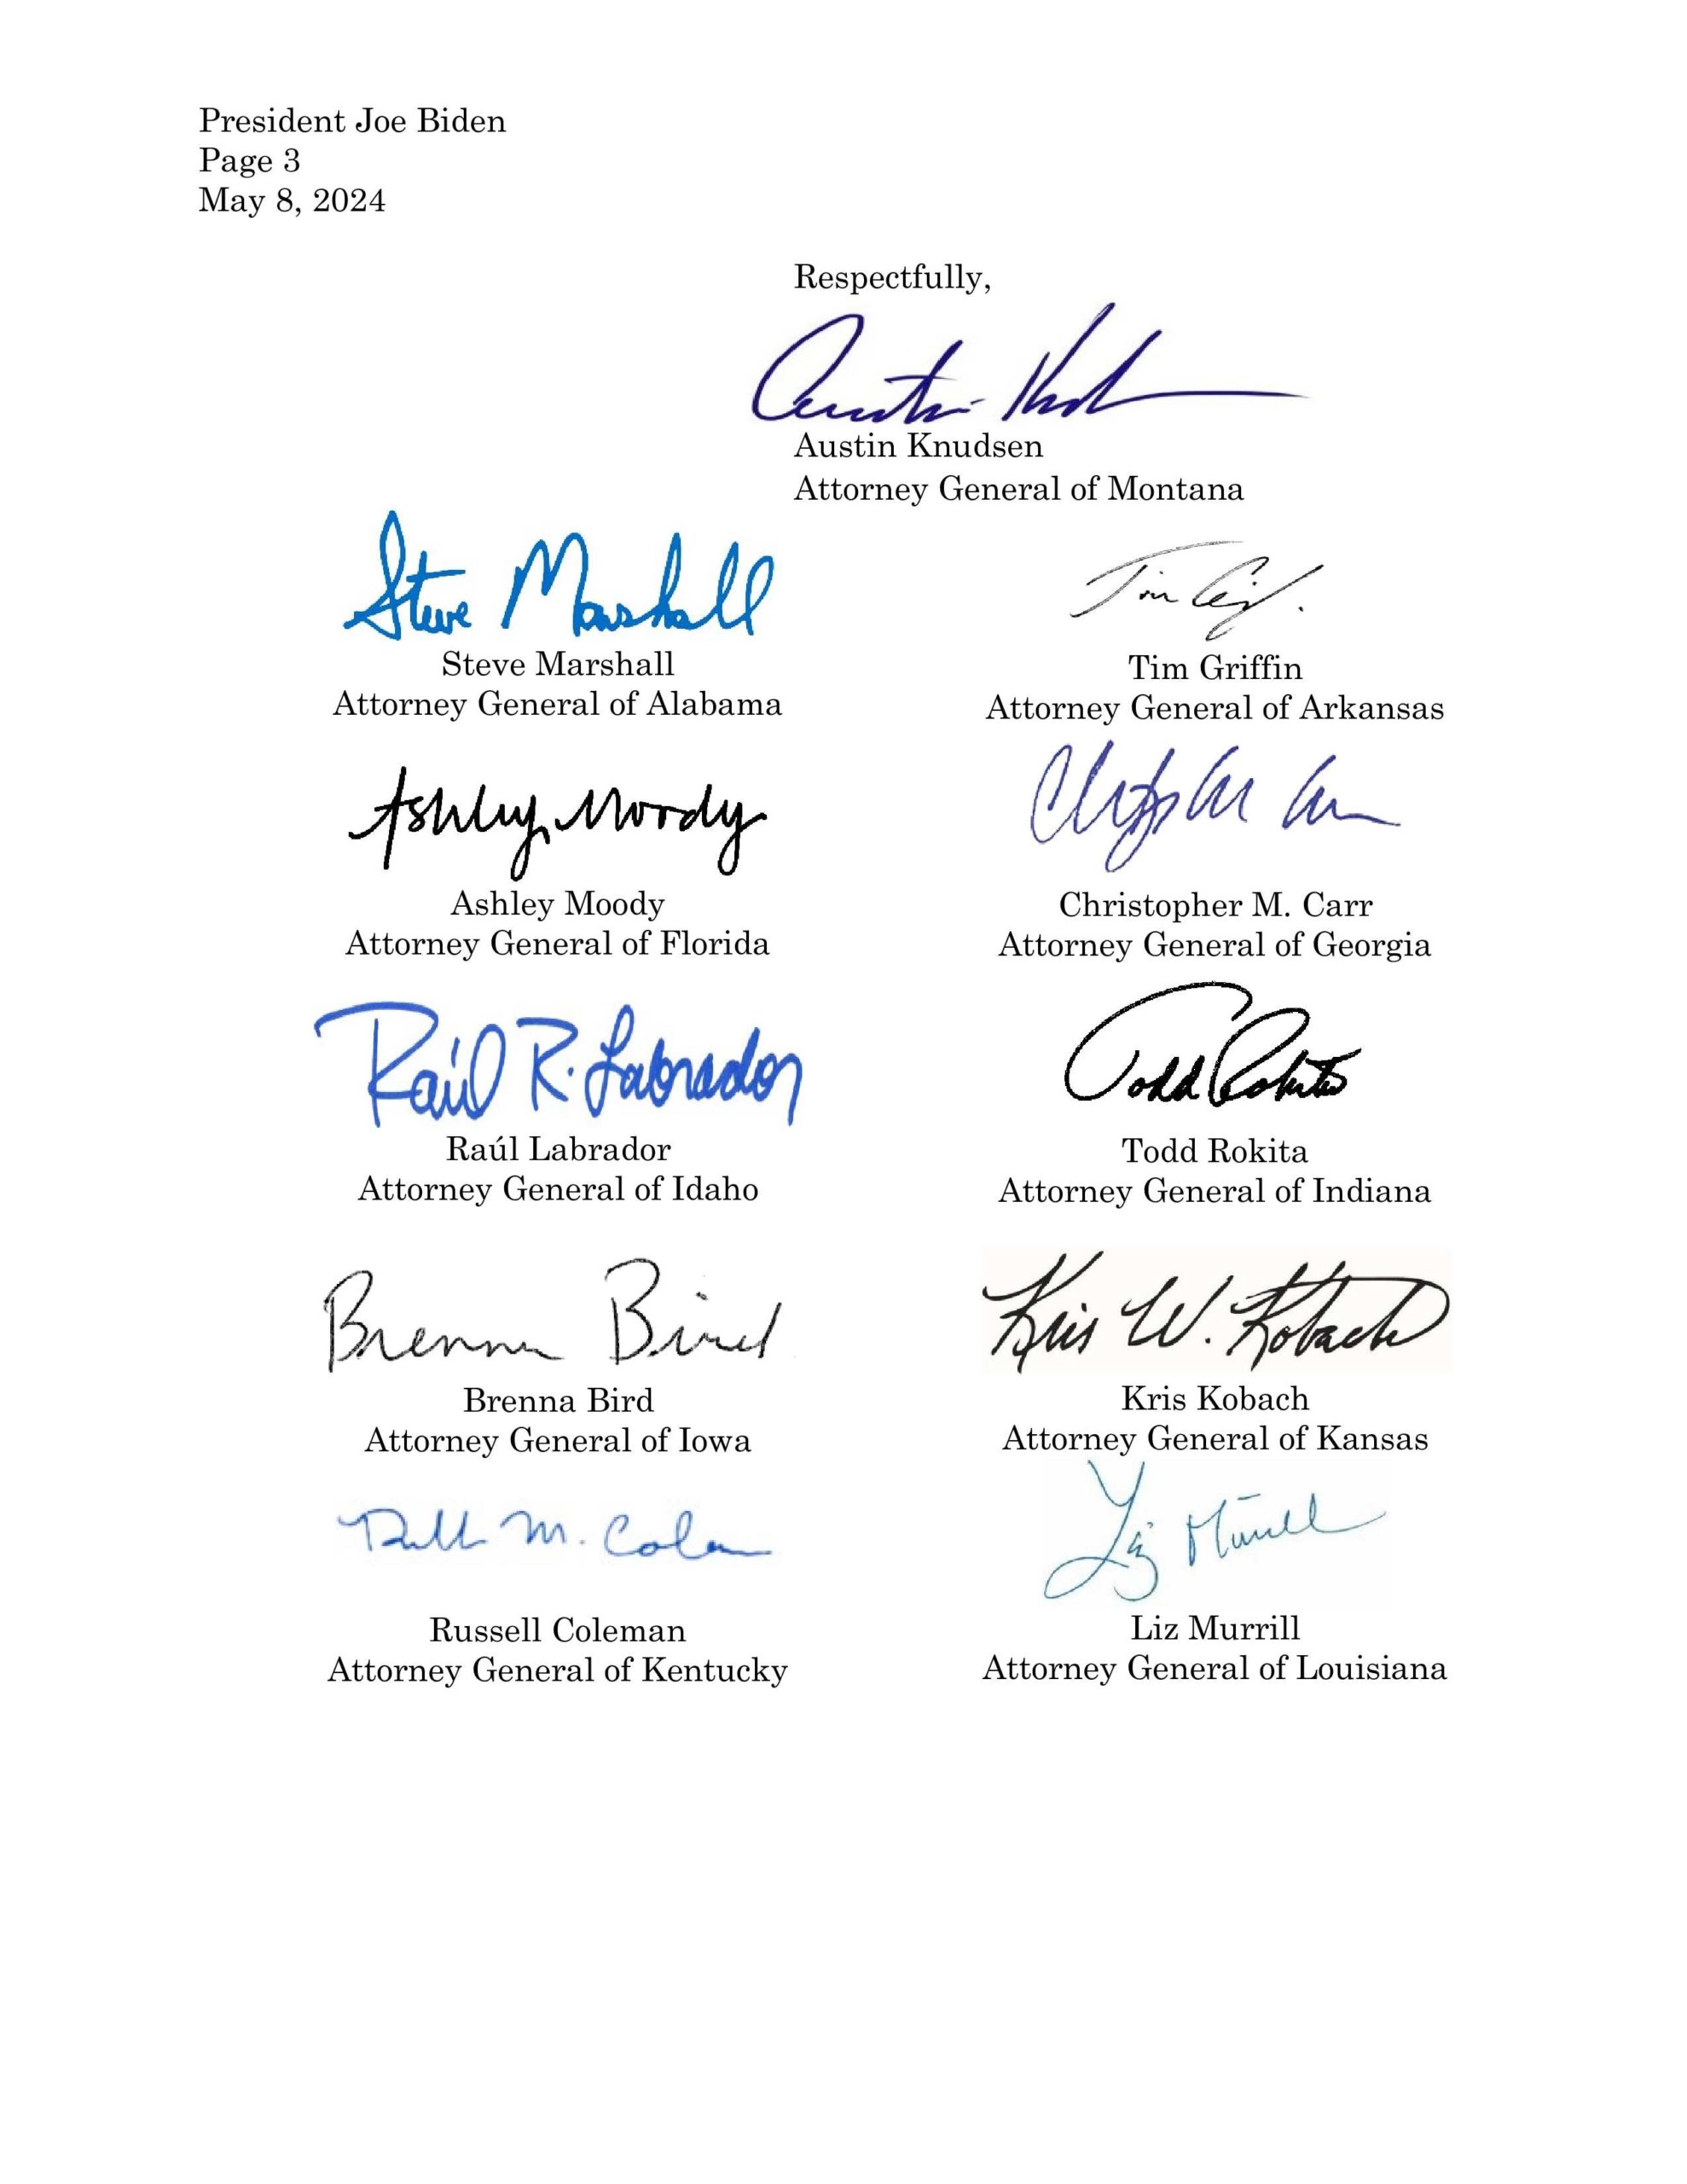 President Joe Biden
Page 3
May 8, 2024
Respectfully,
Austin Knudsen
Attorney General of Montana
Steve Marshall
Steve Marshall
Attorney General of Alabama
Tim
Tim Griffin
Attorney General of Arkansas
Ashley Moody
Ashley Moody
Attorney General of Florida
Christopher M. Carr
Attorney General of Georgia
Raúl R. Labrador
Raúl Labrador
Attorney General of Idaho
Todd Rokita
Todd Rokita
Attorney General of Indiana
Brenna Bird
Brenna Bird
Attorney General of Iowa
Kris W. Kobach
Kris Kobach
Attorney General of Kansas
M.
Russell Coleman
Attorney General of Kentucky
Liz Murrill
Liz Murrill
Attorney General of Louisiana